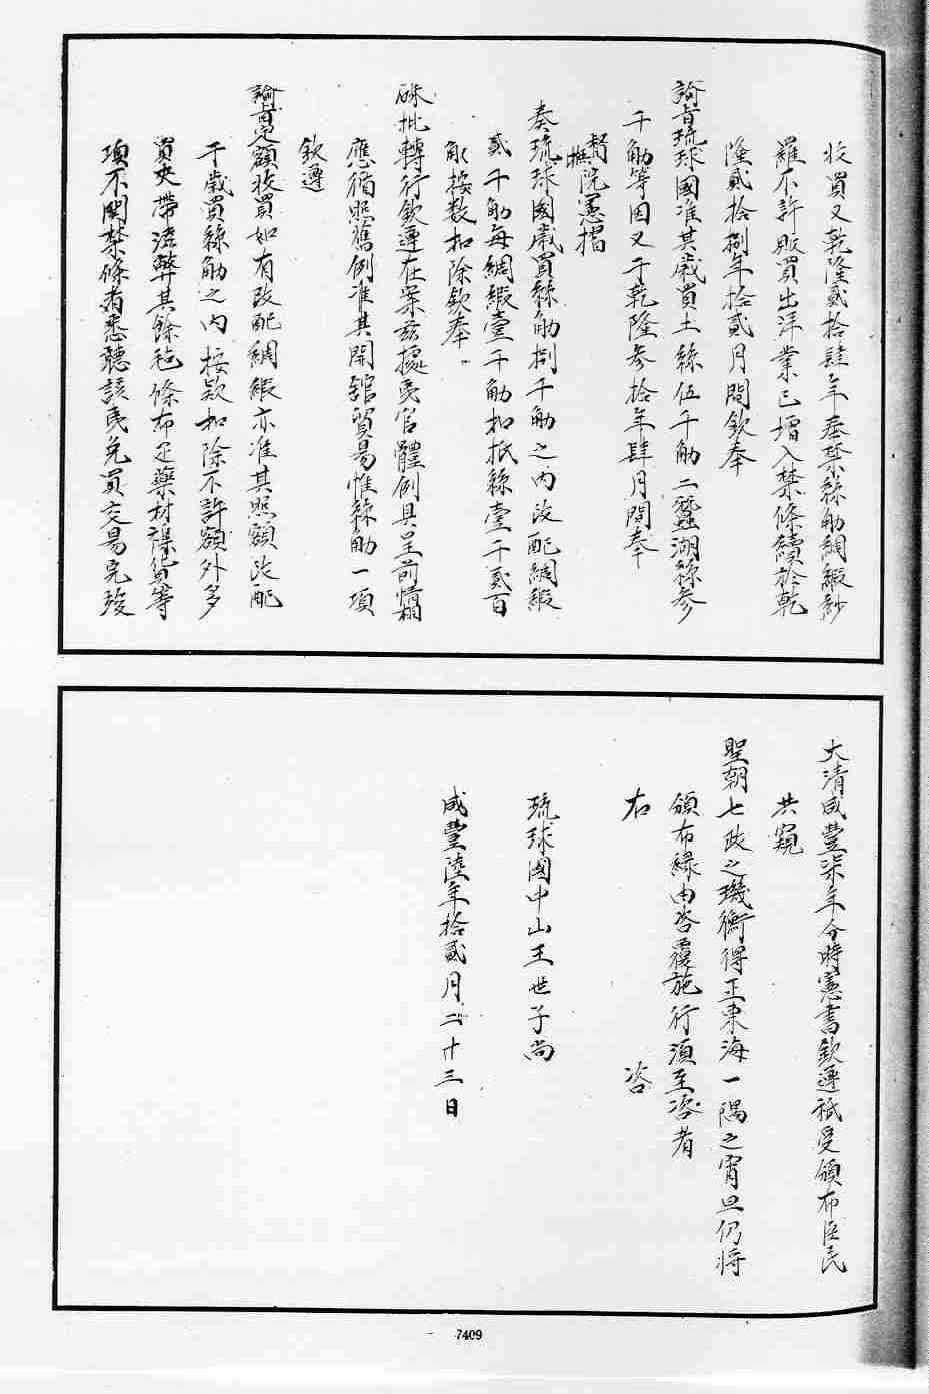 收買又乾隆貳拾肆年奉禁絲觔綢緞紗
羅不許販買出洋業已增入禁條續於乾
隆貳拾捌年拾貳月間欽奉
諭旨琉球國准其歲買土絲伍千觔二蠶湖絲叁
千觔等因又于乾隆叁拾年肆月間奉
督撫院憲摺
奏琉球國歲買絲觔捌千觔之內改配綢緞
貳千觔每綢緞壹千觔扣抵絲壹千貳百
觔按数扣除欽奉
硃批轉行欽遵在案兹據夷官體例具呈前情
應循照舊例准其開舘貿易惟絲觔一項
欽遵
諭旨定額收買如有改配綢緞亦准其照額改配
于歲買絲觔之内按欵扣除不許額外多
買夾帶滋弊其餘毡條布疋藥材襍貨等
項不関禁條者悉聽該夷兌買交易完竣
大清咸豐柒年分時憲書欽遵祗受頒布臣民
共窺
聖朝七政之璣衡得正東海一隅之宵旦仍將
頒布緣由咨覆施行湏至咨者
右 咨
琉球國中山王世子尚
咸豐陸年拾貳月二十三日
7409